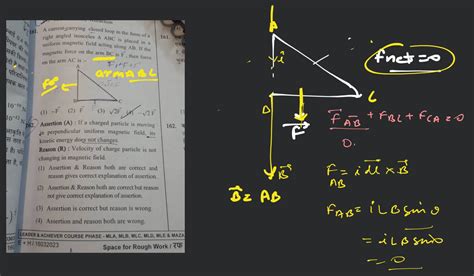 A current carrying closed loop in the form of a
right angled isosceles Δ ABC is placed in a
uniform magnetic field acting along AB. If the
magnetic force on the arm BC is F, then force
on the arm AC is
(1) –F
(2) F
(3) √2F
(4) –√2F
162.
Assertion (A) : If a charged particle is moving
in perpendicular uniform magnetic field, its
kinetic energy does not changes.
Reason (R) : Velocity of charge particle is not
changing in magnetic field.
(1) Assertion & Reason both are correct and
reason gives correct explanation of assertion.
(2) Assertion & Reason are correct but reason
not give correct explanation of assertion.
(3) Assertion is correct but reason is wrong
(4) Assertion and reason are wrong.
LEADER & ACHIEVER COURSE PHASE - MLA, MLB, MLC, MLD, MLE & MAZA
19032023
Space for Rough Work / रफ
161.
162.
A
i
C
F
B = AB
Fnet = 0
F AB + FBC + FCA = 0
0.
F = i dl × B
AB
FAB = i LB sin 0
= i LB sin 0
= 0